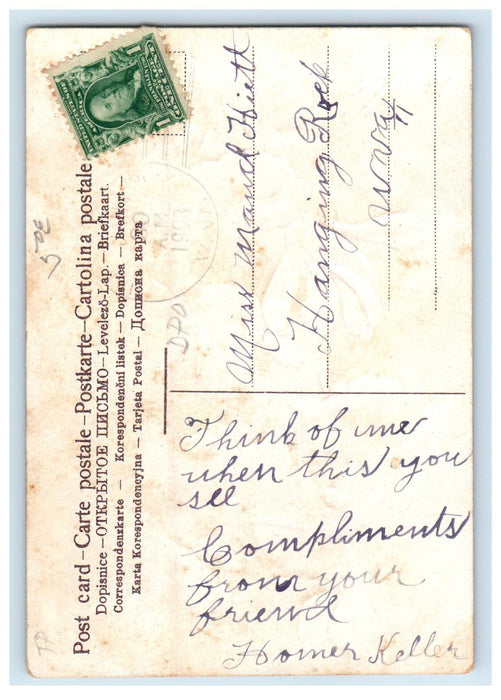 Post card – Carte postale – Postkarte – Cartolina postale
Dopisnice – ОТКРЫТОЕ ПИСЬМО – Levelező-Lap. – Briefkaart.
Correspondenzkarte — Korespondenční listek – Dopisnica – Brefkort –
Karta Korespondencyjna – Tarjeta Postal – Дописна карта
1
1
1908
DPO
50E
TP
Miss Maud Hieth
Hanging Rock
W Va
Think of me
when this you
see
Compliments
from your
friend
Homer Keller